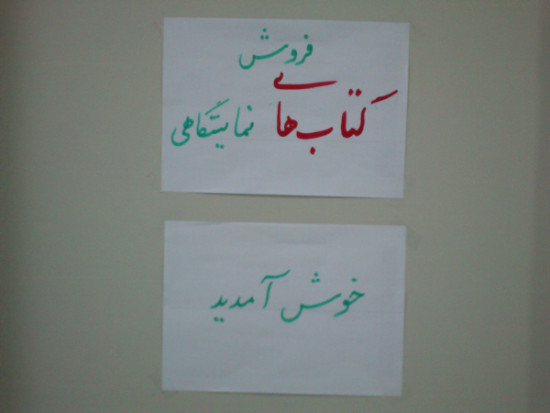 فروش
کتاب‌های نمایشگاهی
خوش آمدید